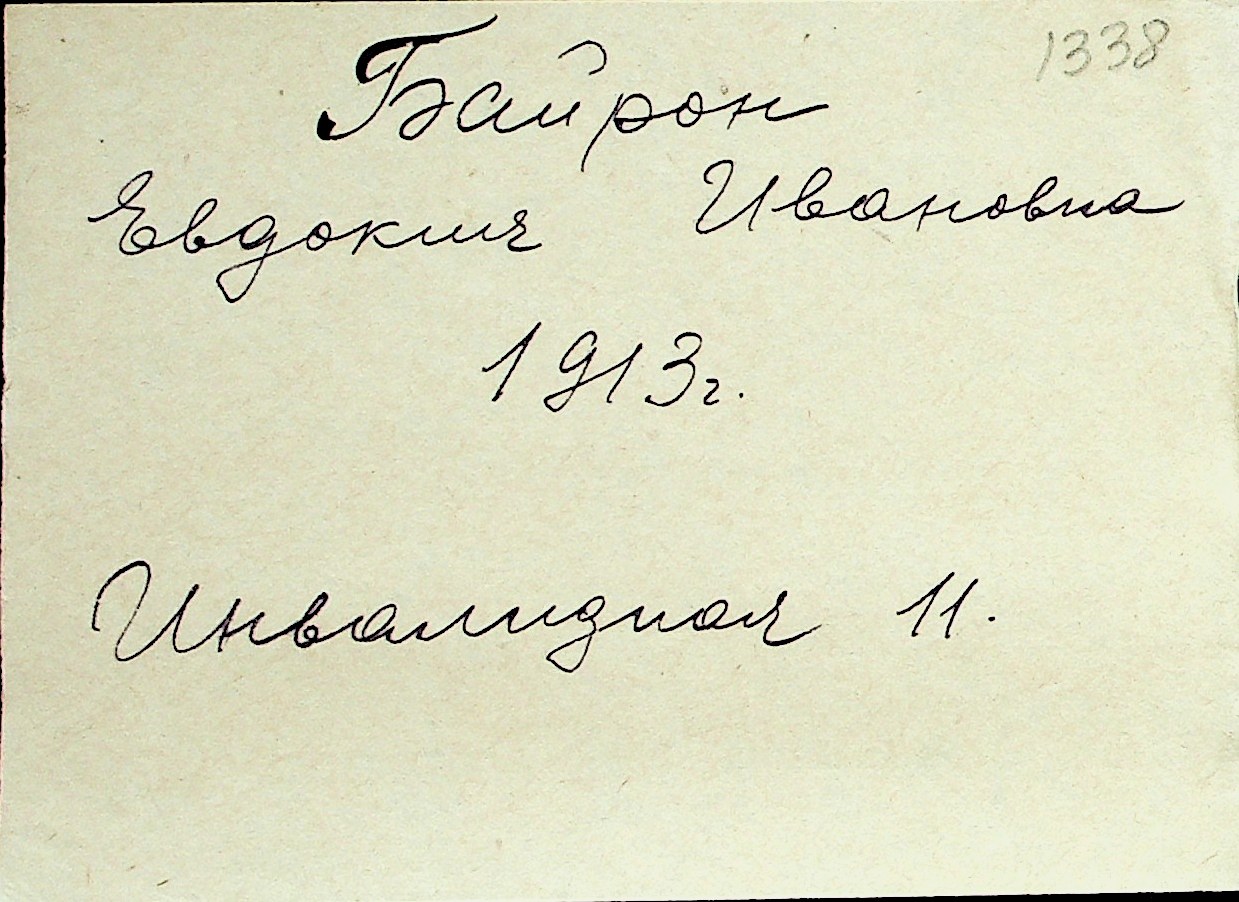 1338
Байрон
Евдокия Ивановна
1913г.
Инвалидная 11.